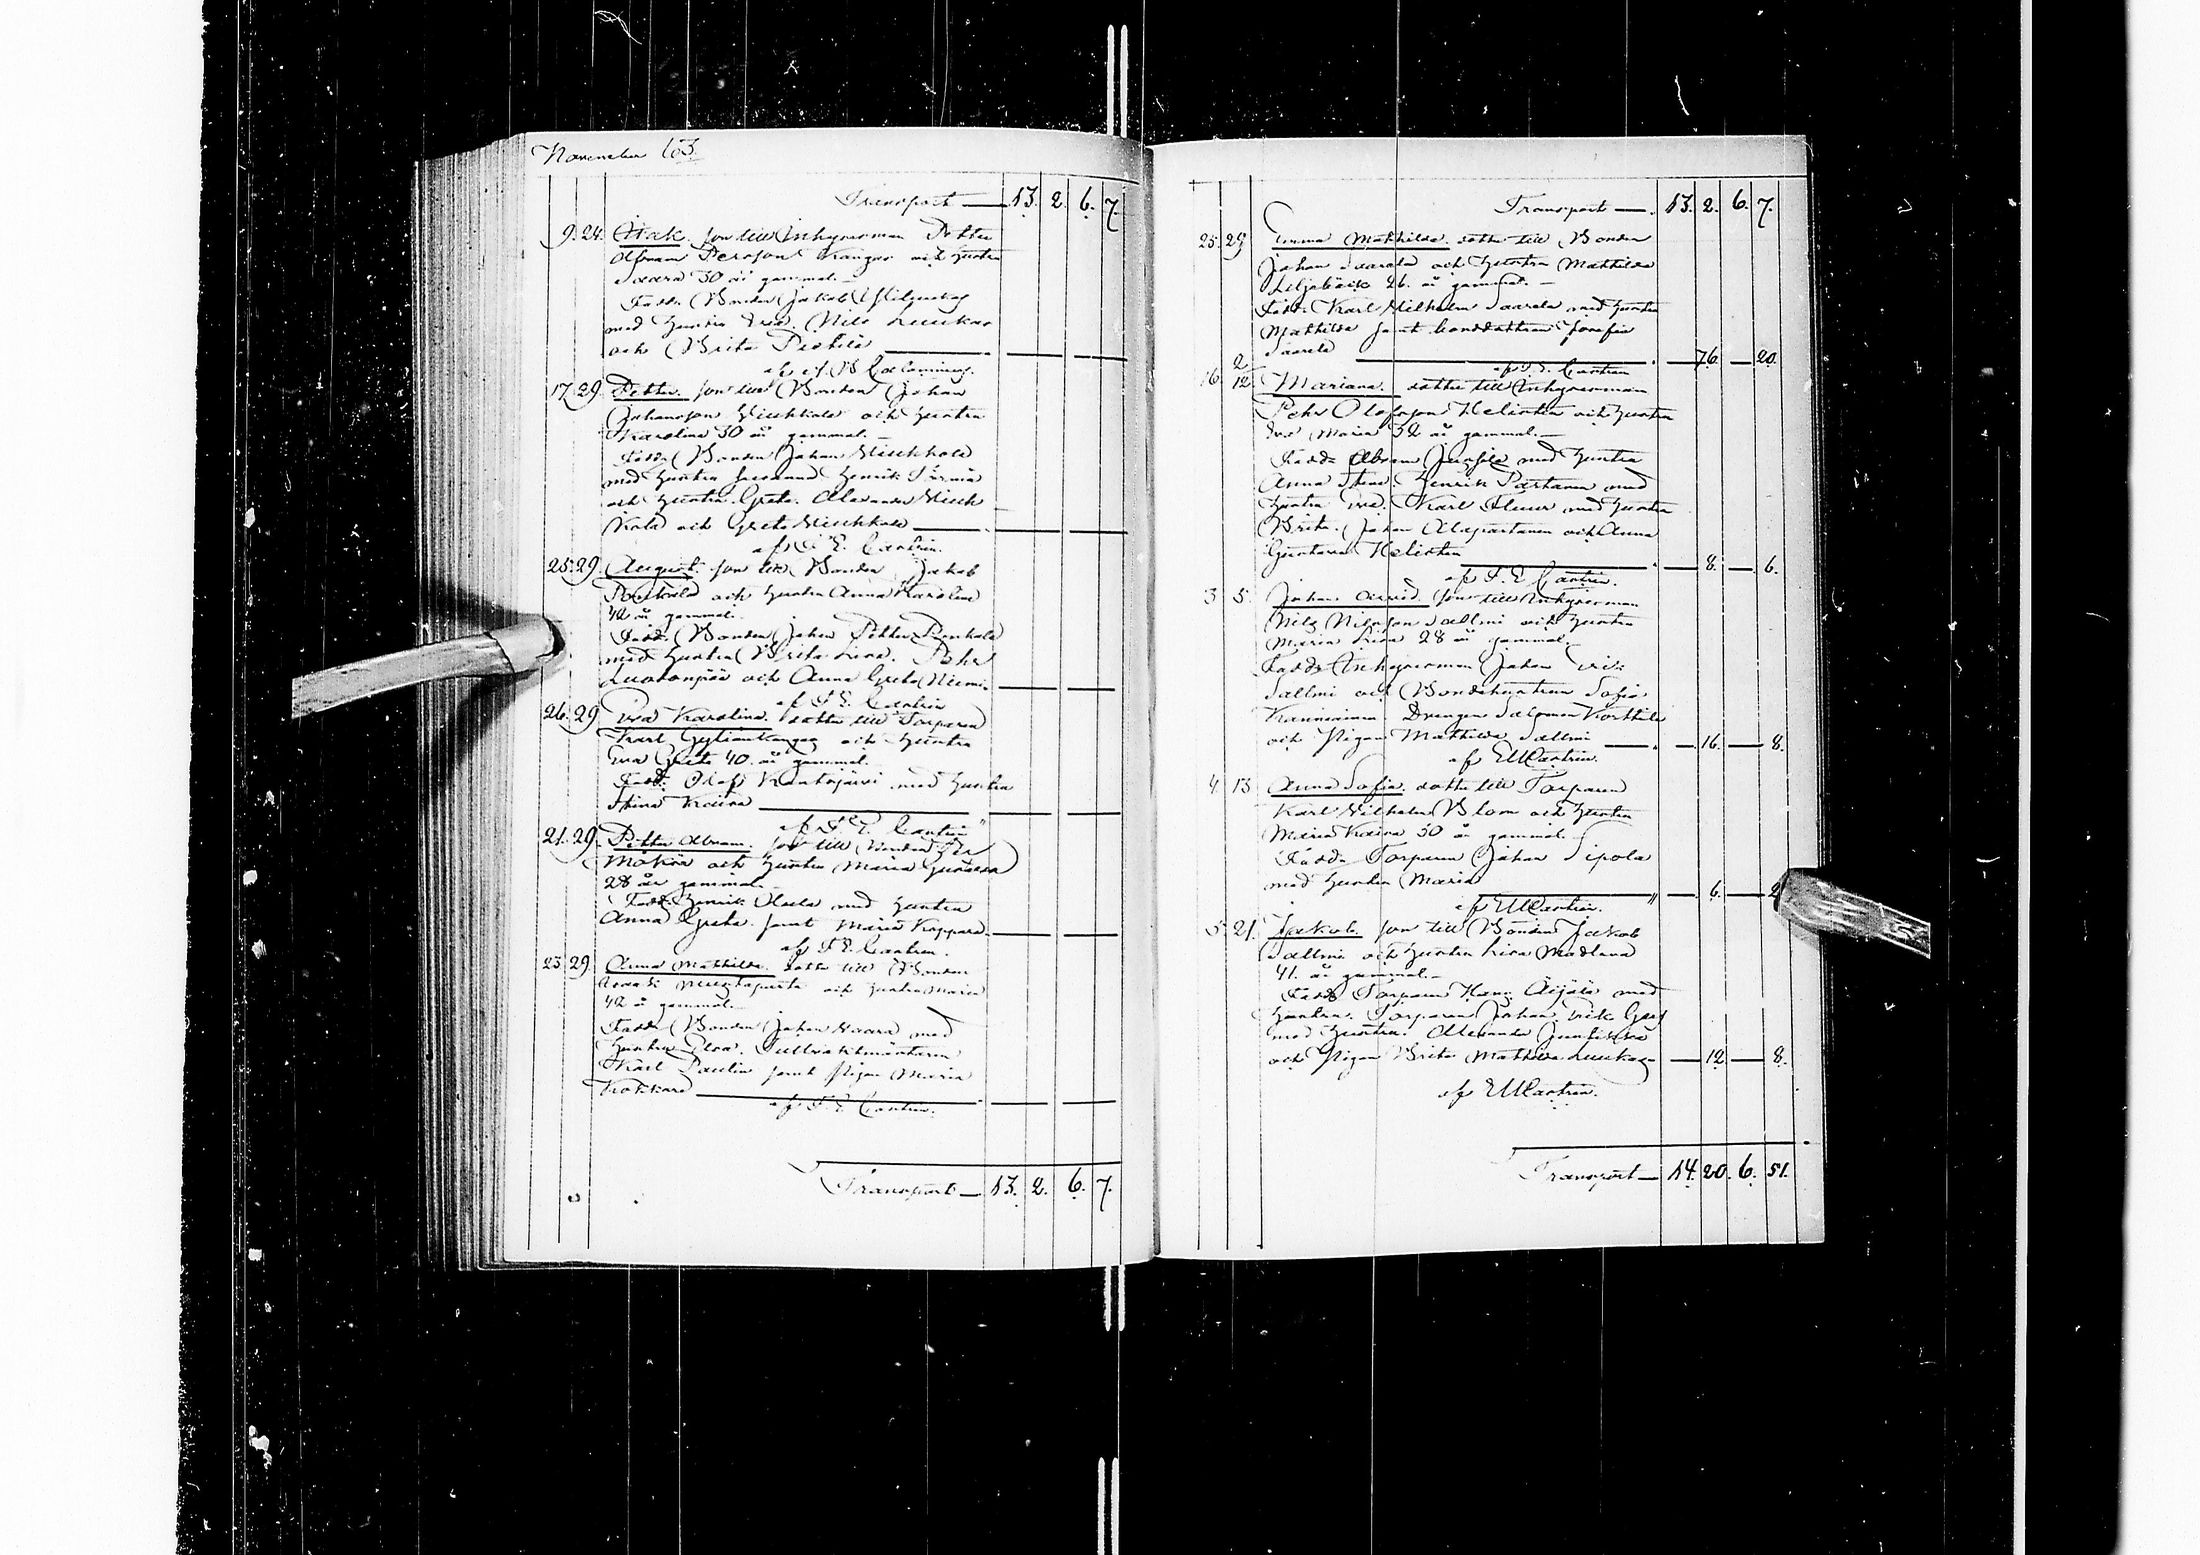 November 63.
Transport — 13. 2. 6. 7.
9. 24. Isak. son till Inhysesman Petter
Abram Persson Kangas och hustru
Saara 30 år gammal. —
Fadd: Bonden Jakob
med hustru Eva. Nils Luukas
och Brita Perttilä
af
17 29. Petter. son till Bonden Johan
Johansson och hustru
Karolina 30 år gammal. —
Fadd: Bonden Johan
med hustru Susanna Henrik
och hustru Greta. Alexander
och Greta
af F. E. Castrén.
25 29. August. son till Bonden Jakob
och hustru Anna Karolina
42 år gammal.
Fadd: Bonden Johan Petter
med hustru Brita Lisa. Pehr
och Anna Greta Niemi
af F. E. Castrén
26. 29. Eva Karolina. dotter till Torparen
Karl och hustru
Eva Greta 40. år gammal.
Fadd: Olof Kantojärvi med hustru
Stina Kaisa
af F. E. Castrén
21. 29. Petter Abram. son till Bonden Per
och hustru Maria Gustava
28 år gammal.
Fadd: Henrik med hustru
Anna Greta. samt Maria
af F. E. Castrén.
23 29. Anna Mathilda. dotter till Bonden
och hustru Maria
42 år gammal.
Fadd: Bonden Johan Haara med
hustru
Karl Paulin samt Pigan Maria
af F. E. Castrén.
Transport — 13. 2. 6. 7.
Transport — 13. 2. 6. 7.
25. 29 Emma Mathilda. dotter till Bonden
Johan Saarela och hustru Mathilda
Liljebäck 26. år gammal. —
Fadd: Karl Wilhelm Saarela med hustru
Mathilda samt bonddottren Josefia
Saarela — 76. — 20.
af F. E. Castrén
16 2/12 Mariana. dotter till Inhysesman
Pehr Olofsson Helistén och hustru
Eva Maria 32 år gammal. —
Fadd: Abram med hustru
Anna Stina. Henrik Partanen med
hustru Eva. Karl med hustru
Brita. Johan Alapartanen och Anna
Gustava Helistén — 8. — 6.
af F. E. Castrén.
3 5. Johan Arvid. son till Inhysesman
Nils Nilsson Sallmi och hustru
Maria Lisa 28 år gammal.
Fadd: Inhysesman Johan Eric
Sallmi och Bondehustrun Sofia
Kanniainen Drengen Salomon
och Pigan Mathilda Sallmi — 16. — 8.
af EMCastrén.
4 13 Anna Sofia. dotter till Torparen
Karl Wilhelm Blom och hustru
Maria Kaisa 30 år gammal.
Fadd: Torparen Johan Sipola
med hustru Maria — 6. — 2
af EMCastrén.
5 21. Jakob. son till Bonden Jakob
Sallmi och hustru Lisa Madlena
41. år gammal. —
Fadd: Torparen Äijälä med
hustru. Torparen Johan Erik
med hustru. Alexander
och Pigan Brita Mathilda Luukas — 12 — 8.
af EMCastrén.
Transport — 14. 20. 6. 51.